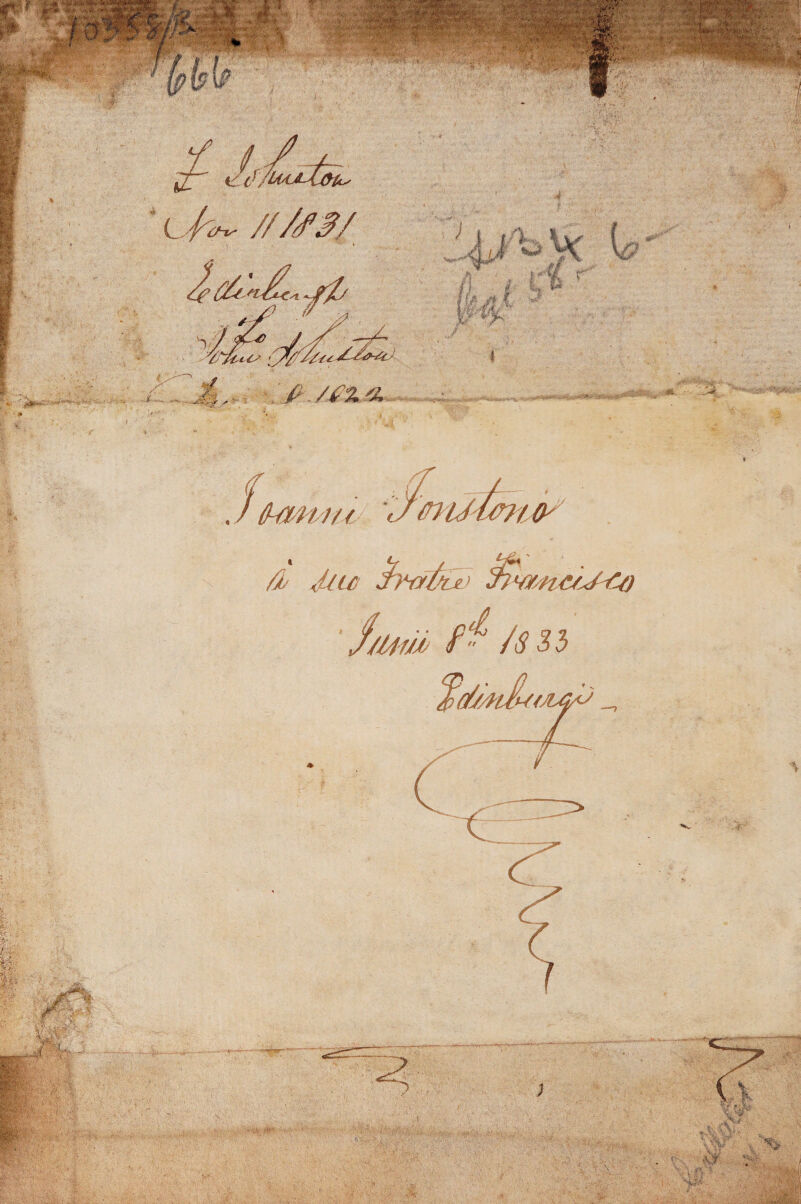 10358/B
666
F Johnston
Nov 11 1831
Edinburgh
To
John Johnston
1822
6-
Cat 58-
Joanni Jonstono
à suo Fratre Francisco
Junii 8th 1833
Edinburgi -
Collated